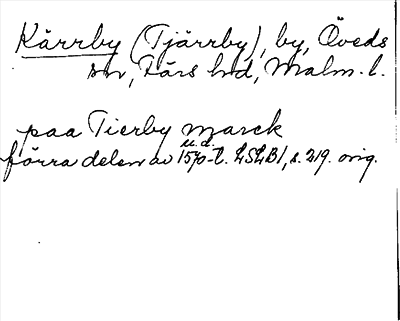 Kärrby (Tjärrby), by, Öveds
sn, Färs hd, Malm. l.
paa Tierby marck
u.d.
förra delen av 1570-t. LSLB1, s. 219. orig.